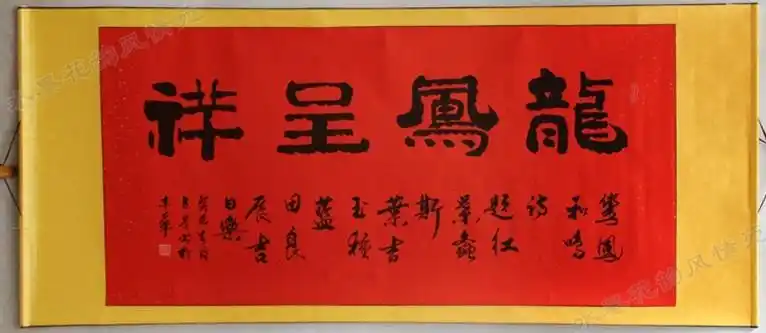 龍鳳呈祥
鸞鳳
和鳴
詩
題紅
葉螽
斯
葉吉
玉種
藍
田良
辰吉
日樂